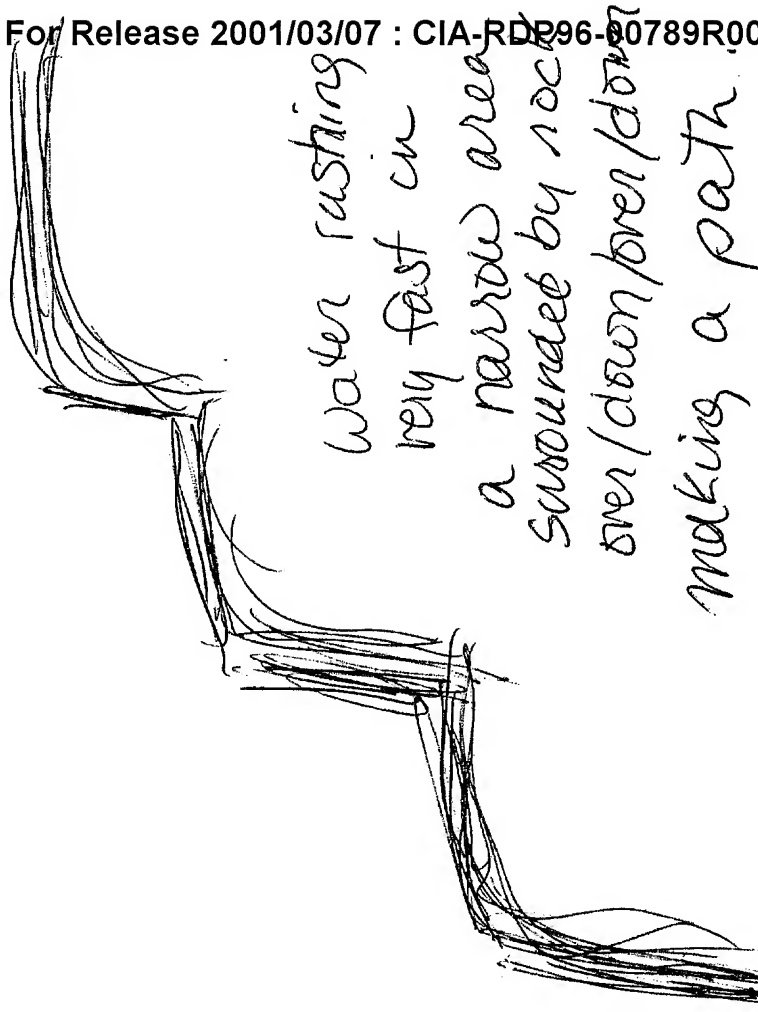 For Release 2001/03/07 : CIA-RDP96-00789R00
Water rushing
very fast in
a narrow area
surrounded by rock
over/down/over/down
making a path.